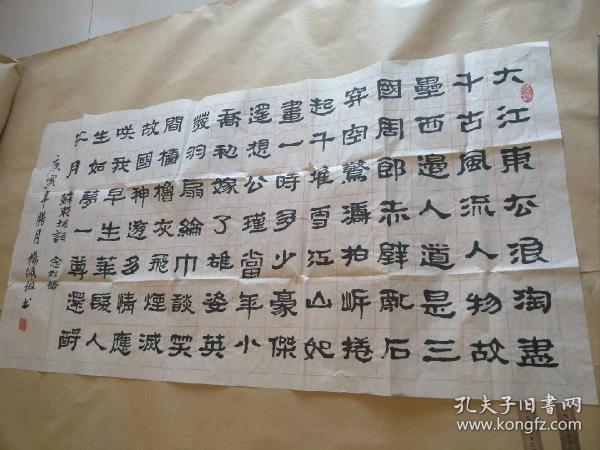 大江東去浪淘盡
千古風流人物故
壘西邊人道是三
國周郎赤壁亂石
穿空驚濤拍岸捲
起千堆雪江山如
畫一時多少豪傑
遙想公瑾當年小
喬初嫁了雄姿英
發羽扇綸巾談笑
間檣櫓灰飛煙滅
故國神遊多情應
咲我早生華髮人
生如夢一尊還酹
江月
蘇東坡詞 念奴嬌
庚寅年腊月 楊書
孔夫子旧书网
www.kongfz.com